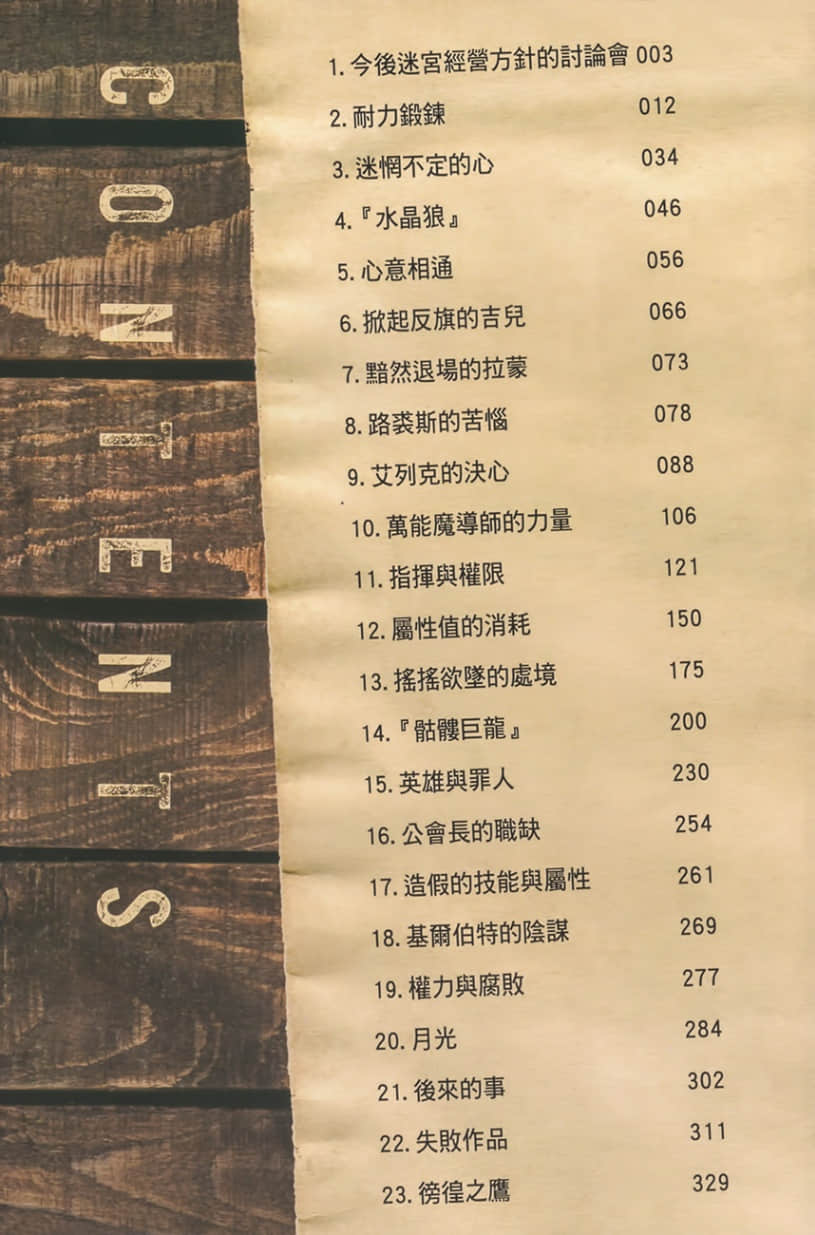 CONTENTS
1. 今後迷宮經營方針的討論會 003
2. 耐力鍛鍊 012
3. 迷惘不定的心 034
4.『水晶狼』 046
5. 心意相通 056
6. 掀起反旗的吉兒 066
7. 黯然退場的拉蒙 073
8. 路裘斯的苦惱 078
9. 艾列克的決心 088
10. 萬能魔導師的力量 106
11. 指揮與權限 121
12. 屬性值的消耗 150
13. 搖搖欲墜的處境 175
14.『骷髏巨龍』 200
15. 英雄與罪人 230
16. 公會長的職缺 254
17. 造假的技能與屬性 261
18. 基爾伯特的陰謀 269
19. 權力與腐敗 277
20. 月光 284
21. 後來的事 302
22. 失敗作品 311
23. 徬徨之鷹 329